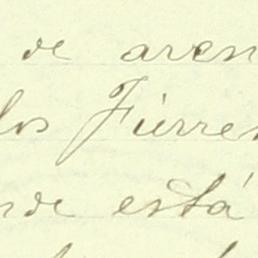 de aren
los Fierre
nde está